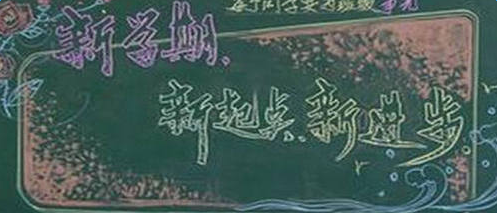 新学期、
新起点、新进步